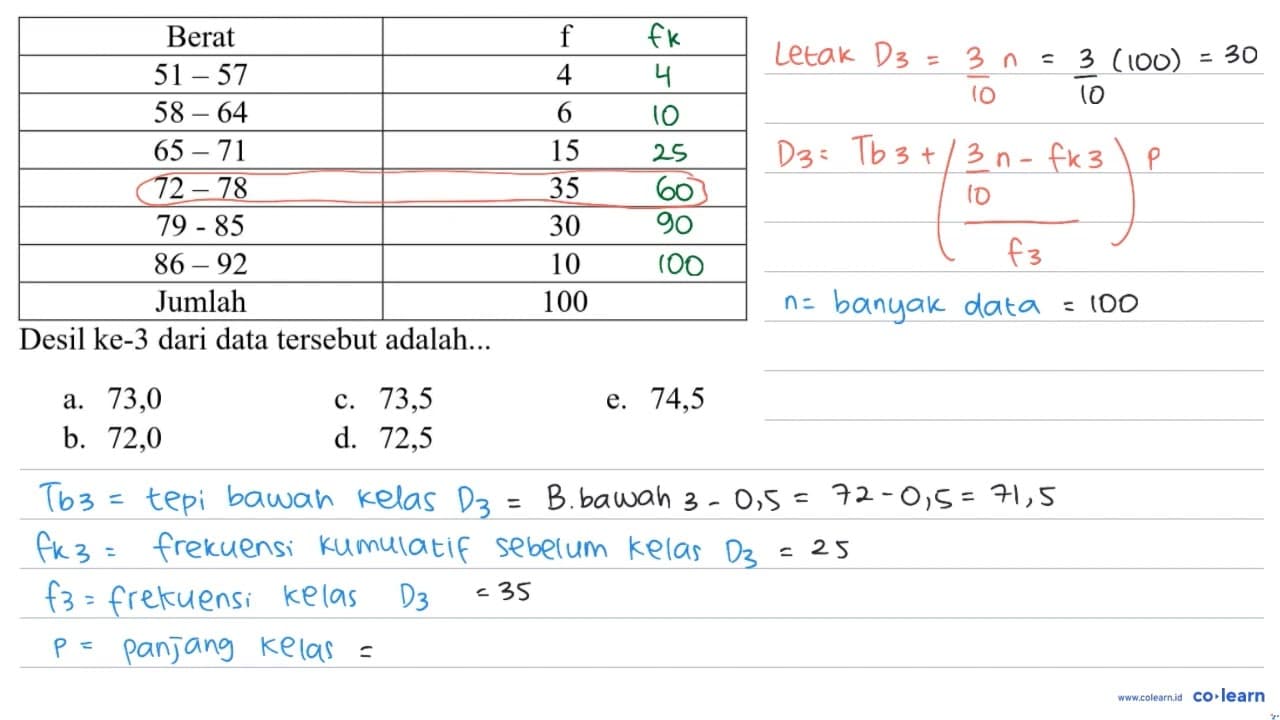 Berat f fk
51 – 57 4 4
58 – 64 6 10
65 – 71 15 25
72 – 78 35 60
79 - 85 30 90
86 – 92 10 100
Jumlah 100
Desil ke-3 dari data tersebut adalah...
a. 73,0 c. 73,5 e. 74,5
b. 72,0 d. 72,5
Letak D3 = 3/10 n = 3/10 (100) = 30
D3 = Tb3 + ( (3/10 n - fk3) / f3 ) p
n = banyak data = 100
Tb3 = tepi bawah kelas D3 = B.bawah 3 - 0,5 = 72 - 0,5 = 71,5
fk3 = frekuensi kumulatif sebelum kelas D3 = 25
f3 = frekuensi kelas D3 = 35
P = panjang kelas =
www.colearn.id co·learn